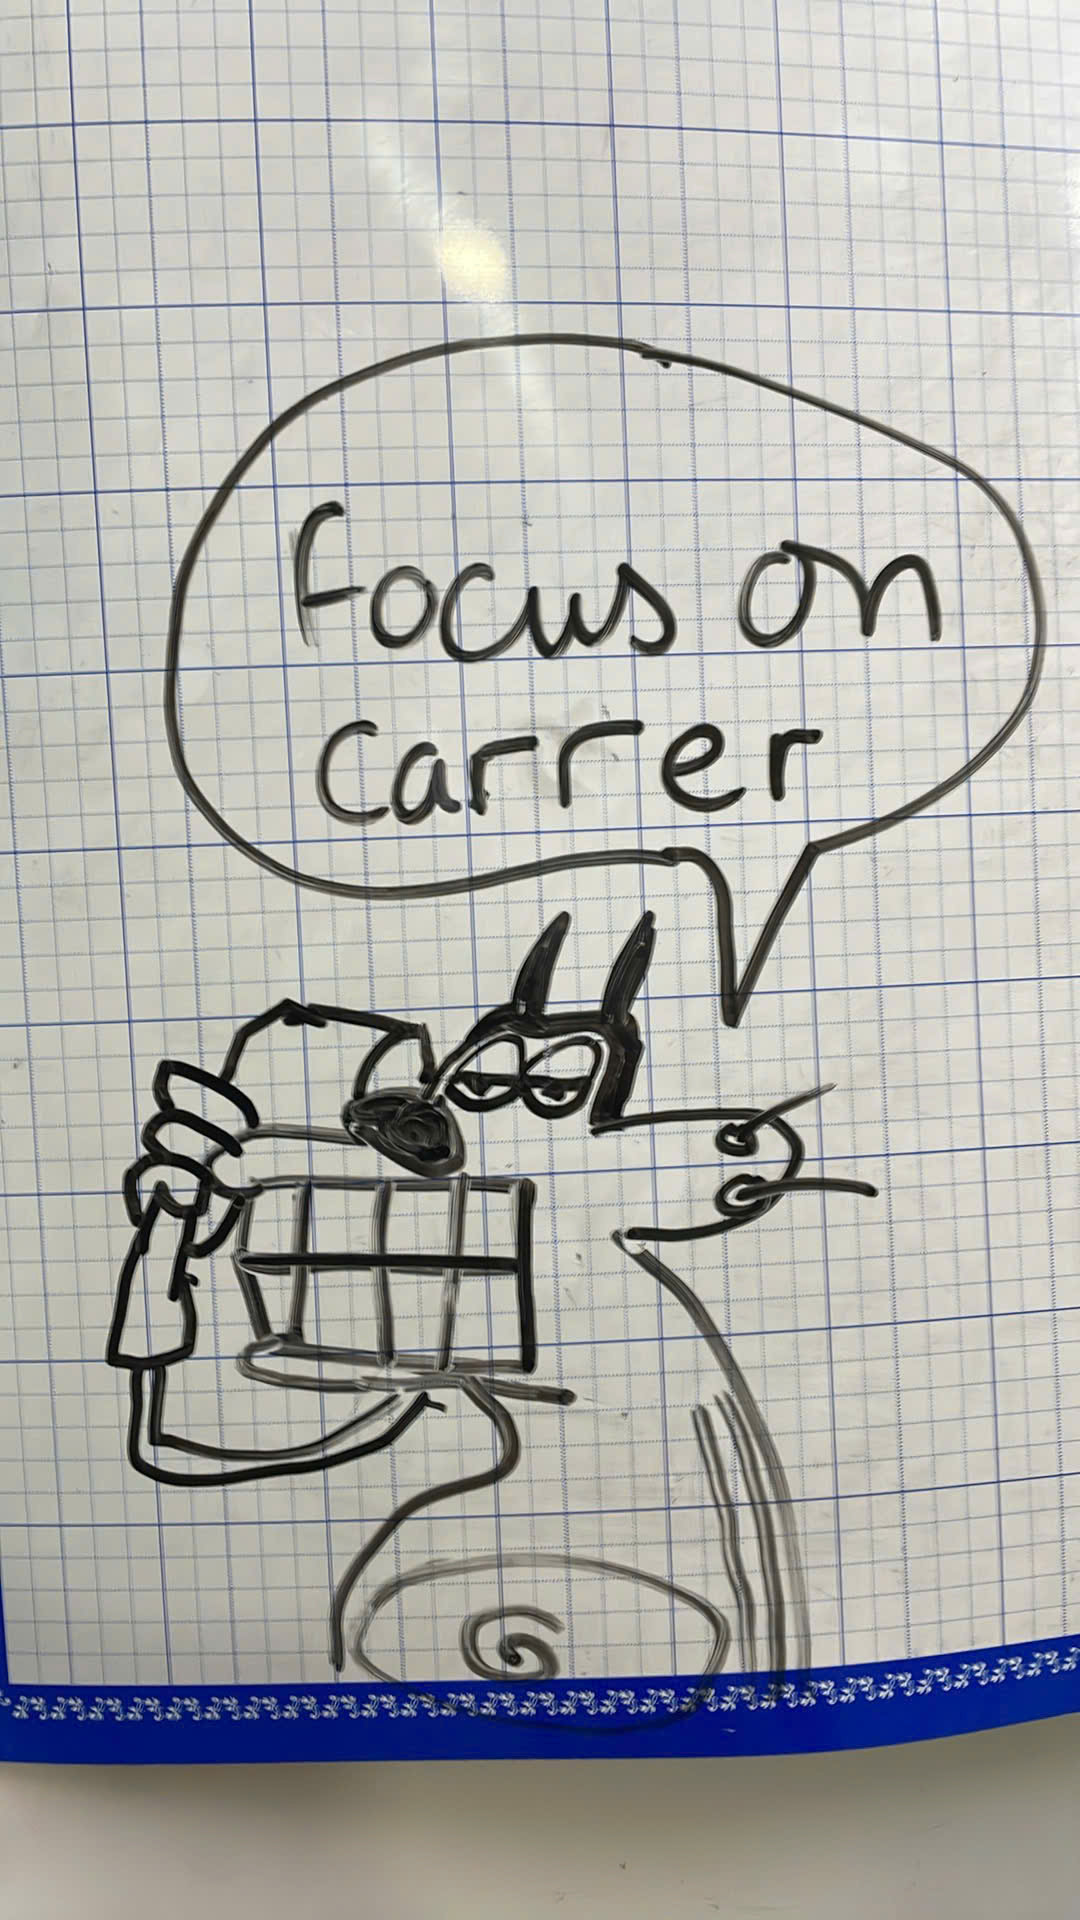 focus on
carrer